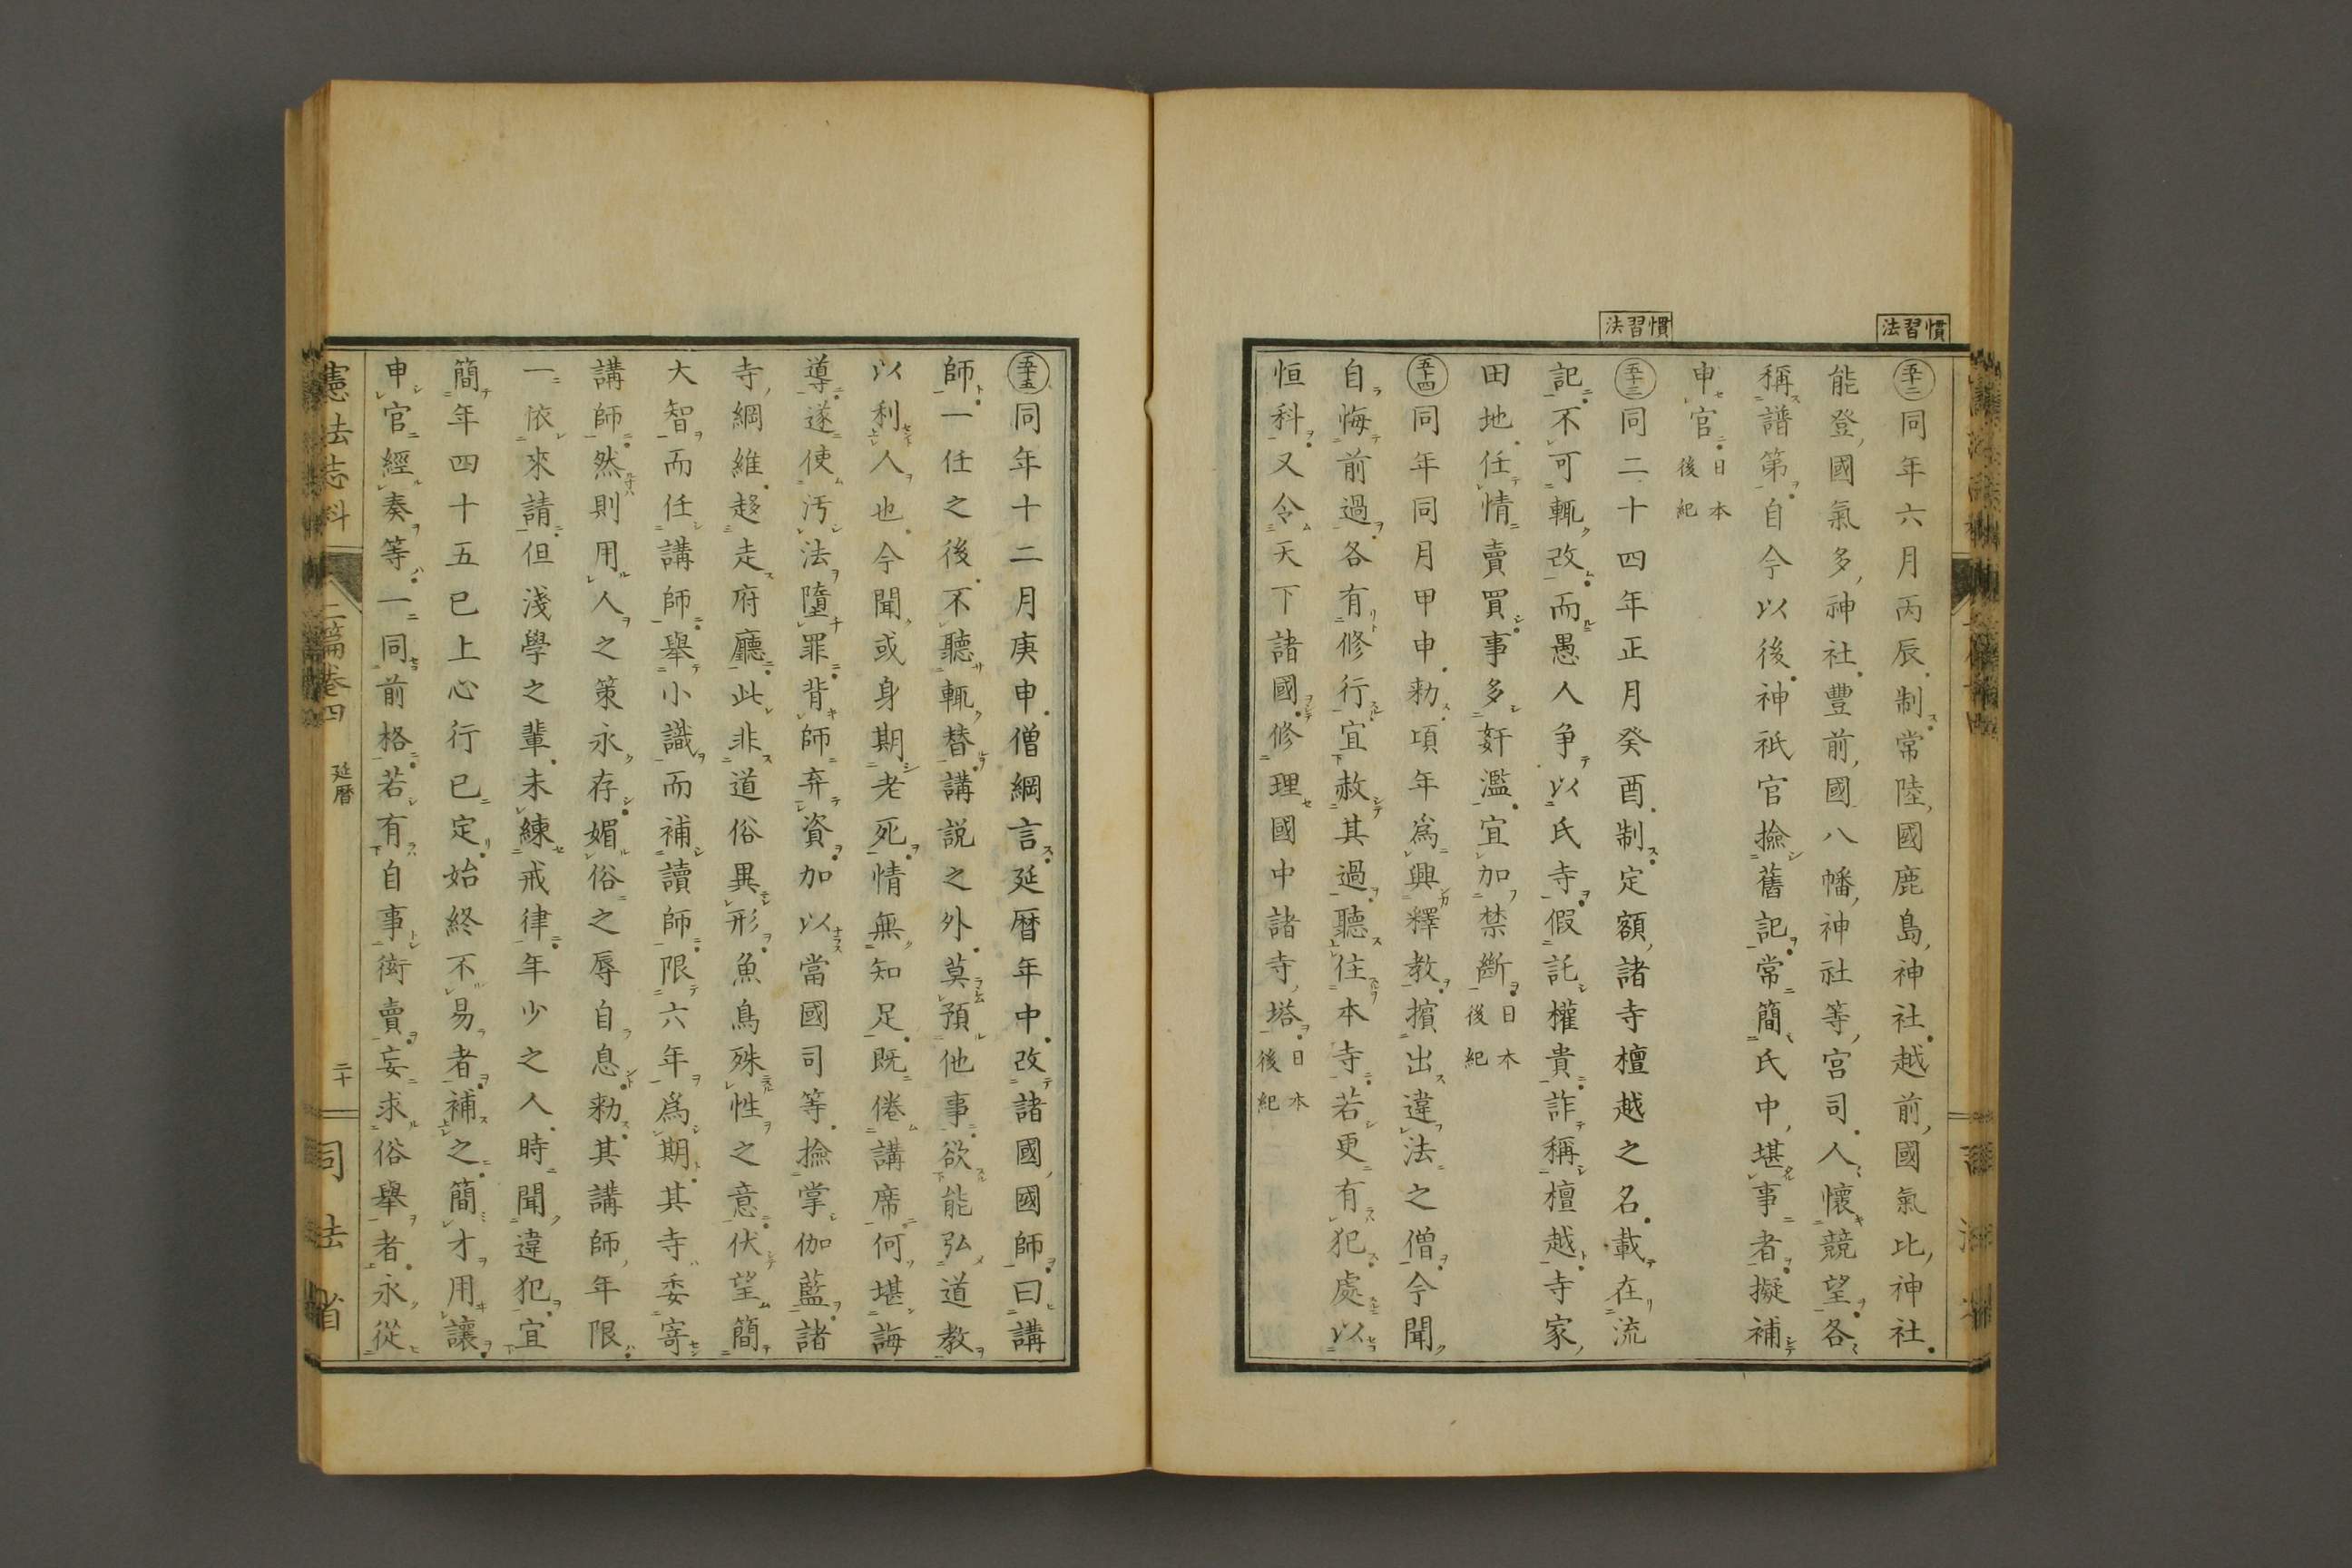 慣習法
五十二同年六月丙辰制常陸國鹿島神社越前國氣比神社
能登國氣多神社豐前國八幡神社等宮司人懷競望各
稱譜第自今以後神祇官撿舊記常簡氏中堪事者擬補
申官日本後紀
慣習法
五十三同二十四年正月癸酉制定額諸寺檀越之名載在流
記不可輒改而愚人争以氏寺假託權貴詐稱檀越寺家
田地任情賣買事多奸濫宜加禁斷日本後紀
五十四同年同月甲申勅項年爲興釋教擯出違法之僧今聞
自悔前過各有修行宜赦其過聽住本寺若更有犯處以
恒科又令天下諸國修理國中諸寺塔日本後紀
五十五同年十二月庚申僧綱言延暦年中改諸國國師曰講
師一任之後不聽輒替講説之外莫預他事欲能弘道教
以利人也今聞或身期老死情無知足既倦講席何堪誨
導遂使汚法墮罪背師弃資加以當國司等撿掌伽藍諸
寺綱維趍走府廳此非道俗異形魚鳥殊性之意伏望簡
大智而任講師舉小識而補讀師限六年爲期其寺委寄
講師然則用人之策永存媚俗之辱自息勅其講師年限
一依來請但淺學之輩未練戒律年少之人時聞違犯宜
簡年四十五已上心行已定始終不易者補之簡才用讓
申官經奏等一同前格若有自事衒賣妄求俗舉者永從
憲法志料 二篇巻四 延暦 二十 司法省